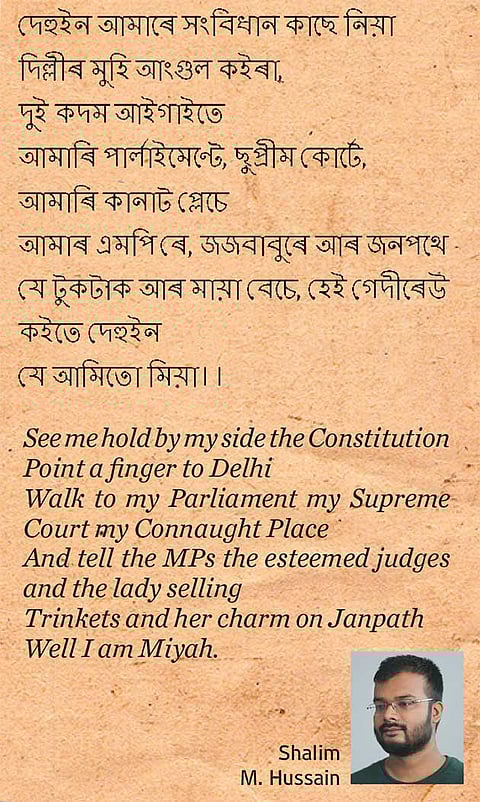 দেহুইন আমাৰে সংবিধান কাছে নিয়া
দিল্লীৰ মুহি আংগুল কইৰা,
দুই কদম আইগাইতে
আমাৰি পার্লাইমেণ্টে, ছুপ্রীম কোর্টে,
আমাৰি কানাট প্লেচে
আমাৰ এমপি ৰে, জজবাবুৰে আৰ জনপথে
যে টুকটাক আৰ মায়া বেচে, হেই গেদীৰেউ
কইতে দেহুইন
যে আমিতো মিয়া।।
See me hold by my side the Constitution
Point a finger to Delhi
Walk to my Parliament my Supreme
Court my Connaught Place
And tell the MPs the esteemed judges
and the lady selling
Trinkets and her charm on Janpath
Well I am Miyah.
Shalim
M. Hussain